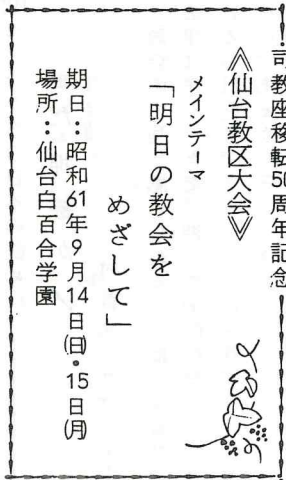 司教座移転50周年記念
《仙台教区大会》
メインテーマ
「明日の教会を
めざして」
期日：昭和61年9月14日(日)・15日(月)
場所：仙台白百合学園